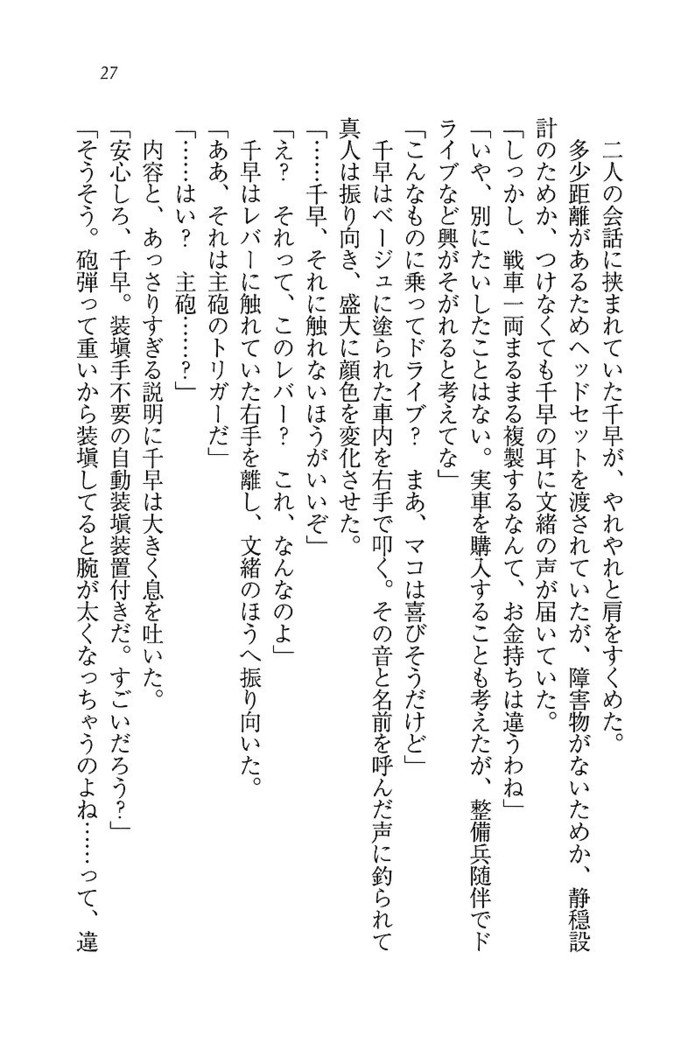 27
二人の会話に挟まれていた千早が、やれやれと肩をすくめた。
多少距離があるためヘッドセットを渡されていたが、障害物がないためか、静穏設
計のためか、つけなくても千早の耳に文緒の声が届いていた。
「しっかし、戦車一両まるまる複製するなんて、お金持ちは違うわね」
「いや、別にたいしたことはない。実車を購入することも考えたが、整備兵随伴でド
ライブなど興がそがれると考えてな」
「こんなものに乗ってドライブ？　まあ、マコは喜びそうだけど」
千早はベージュに塗られた車内を右手で叩く。その音と名前を呼んだ声に釣られて
真人は振り向き、盛大に顔色を変化させた。
「……千早、それに触れないほうがいいぞ」
「え？　それって、このレバー？　これ、なんなのよ」
千早はレバーに触れていた右手を離し、文緒のほうへ振り向いた。
「ああ、それは主砲のトリガーだ」
「……はい？　主砲……？」
内容と、あっさりすぎる説明に千早は大きく息を吐いた。
「安心しろ、千早。装塡手不要の自動装塡装置付きだ。すごいだろう？」
「そうそう。砲弾って重いから装塡してると腕が太くなっちゃうのよね……って、違